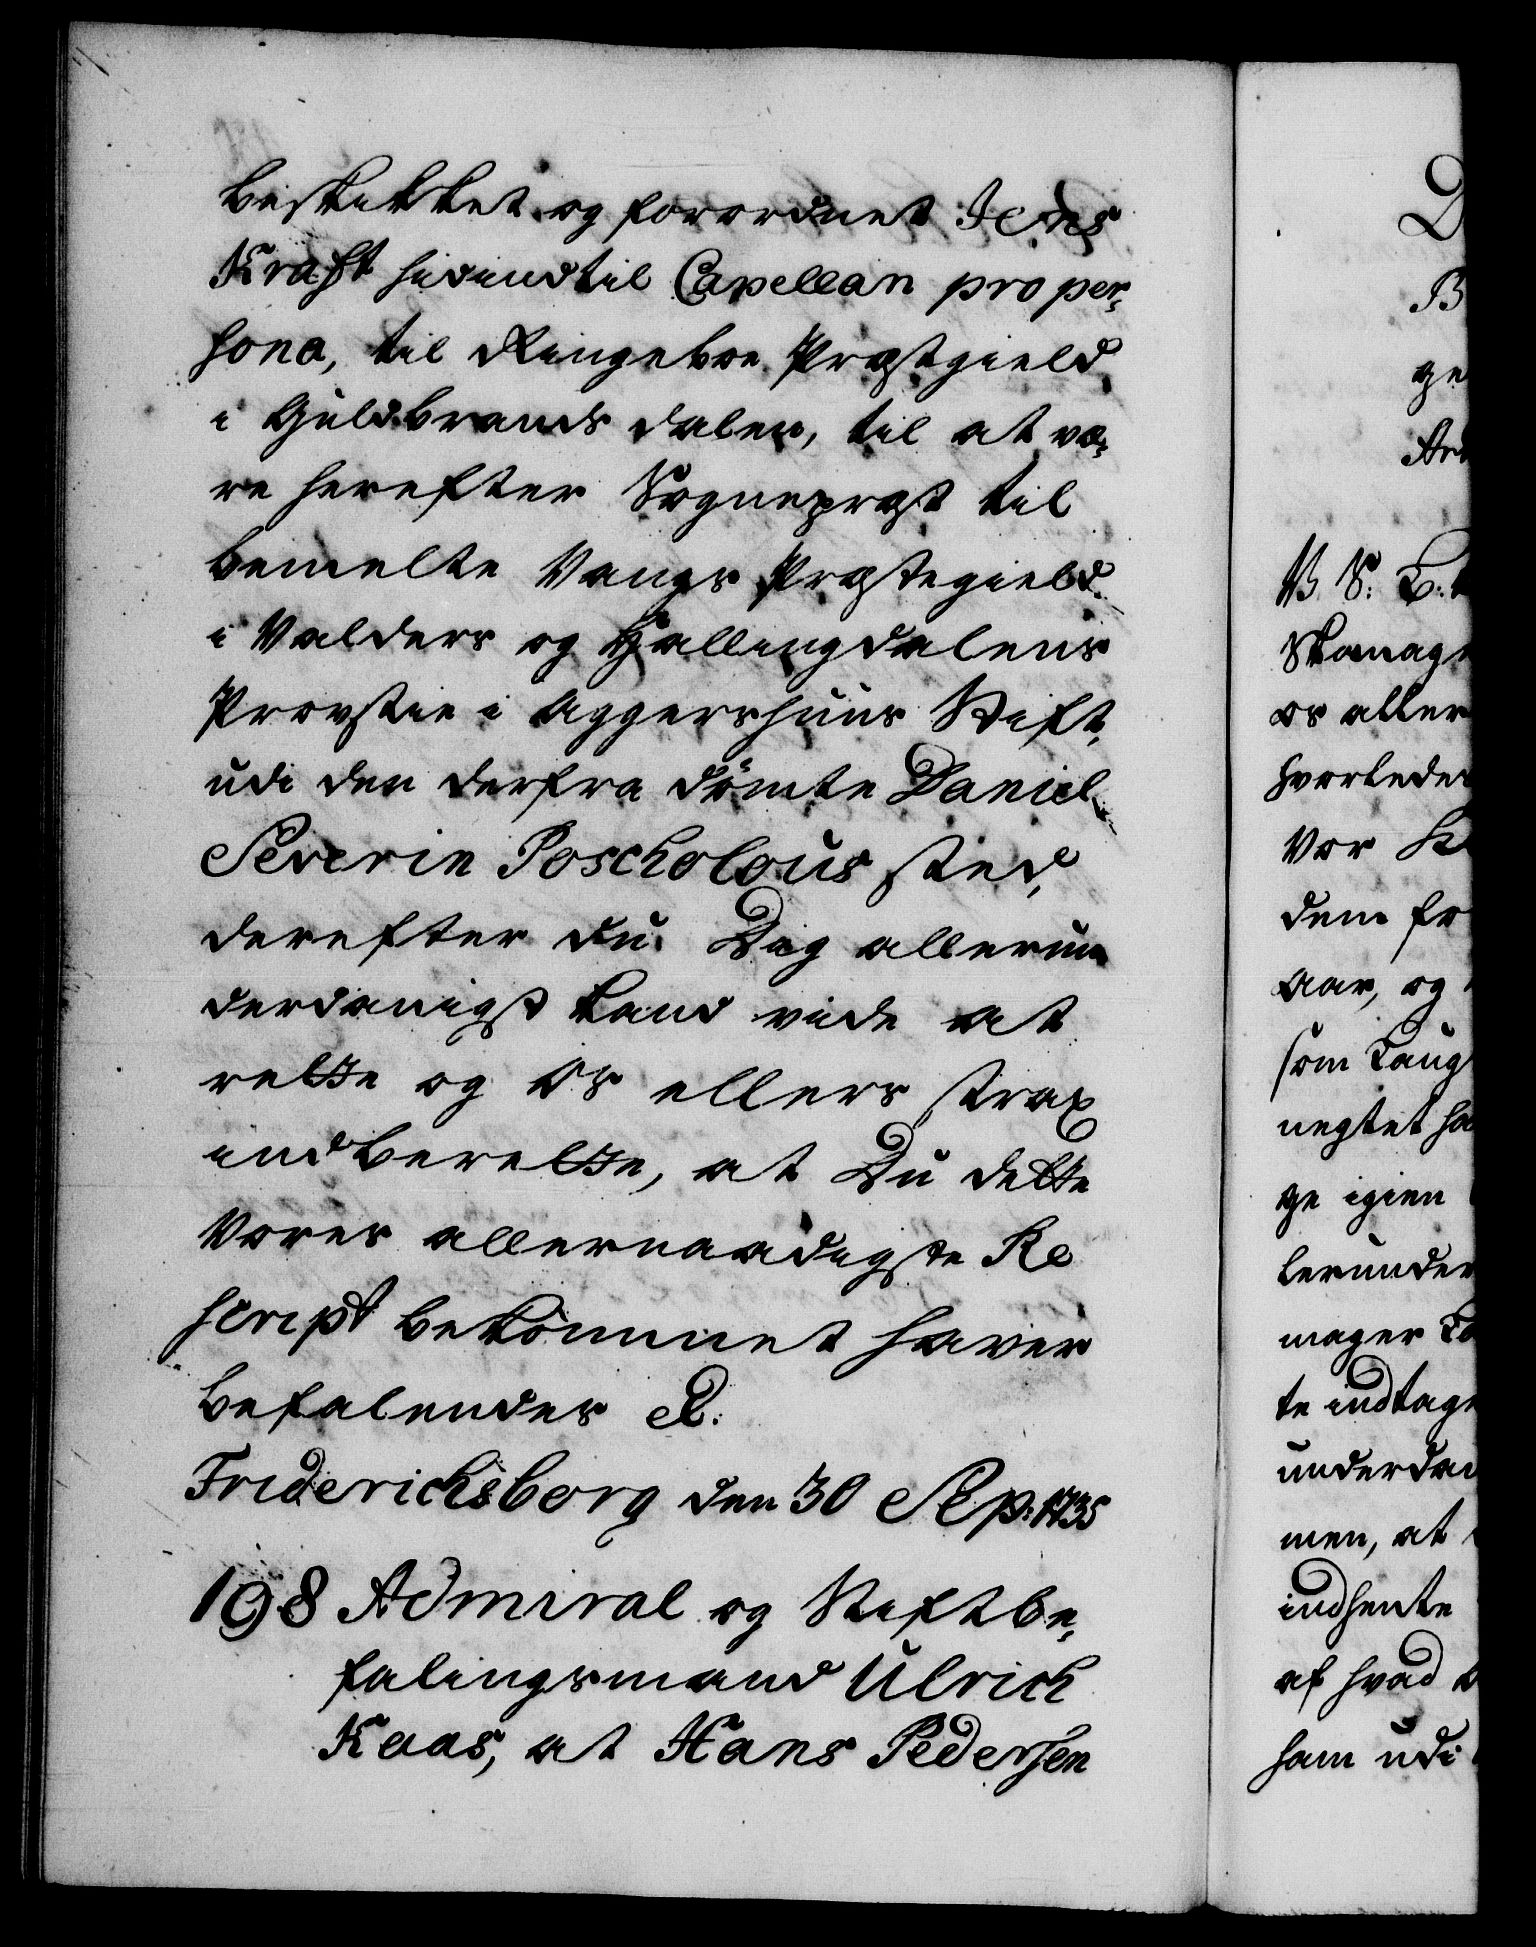 beskikket og forordnet Jens
Kraft hidindtil Capellan pro per¬
sona, til Ringeboe Præstgield
i Guldbrands dalen, til at væ¬
re herefter Sogneprest til
bemelte Vangs Præstegield
i Valders og Hallingdalens
Provstie i Aggershuus Stift,
udi den derfra dömte Daniel
Severin Poscholous sted,
derefter du Dig allerun
derdanigst kand vide at
rette og Os ellers strax
indberette, at Du dette
Vores allernaadigste Re
script bekommet haver
Befalendes &.
Friderichsborg den 30 Sep: 1735
198 Admiral og Stiftbe¬
falingsmand Ulrich
Kaas, at Hans Pedersen
D
B
ge
And
V. S. T.
Skonag
os aller
hvorledes
Vor
dem fo
Aar, og
som Laug
negtet ha
ge igien
lerunder
mager
te indtag
underdan
men, at
indhente
af hvad
ham udi